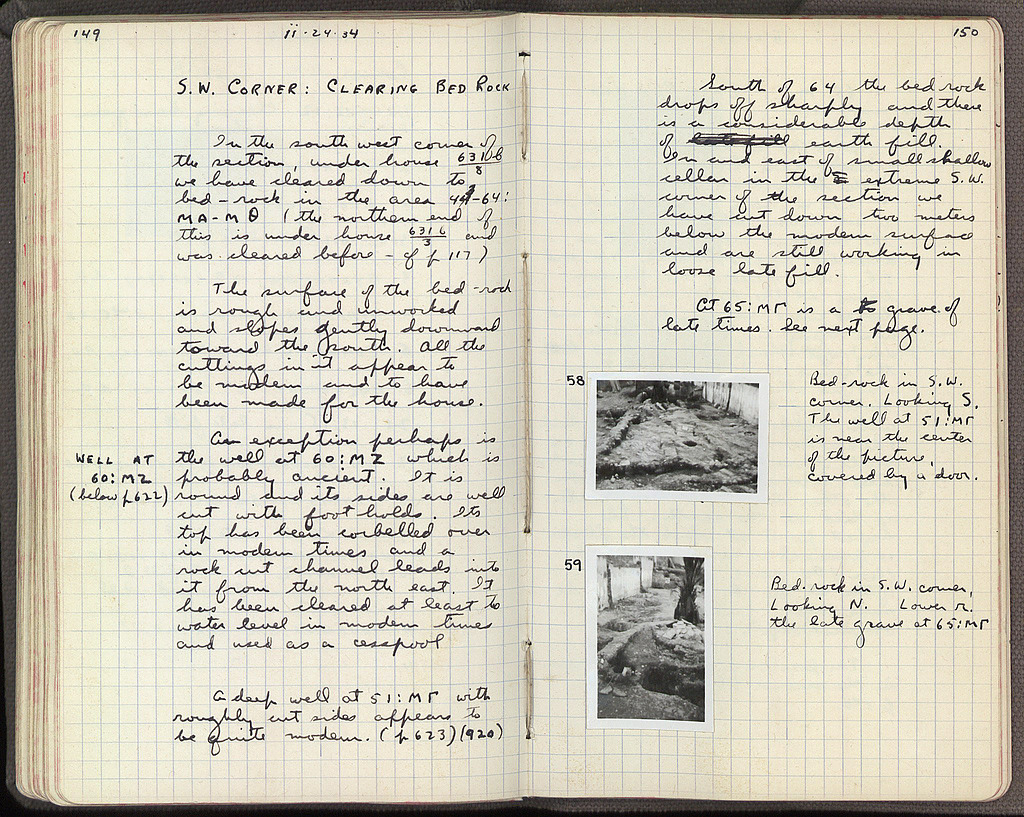 149
ii·24·34
S.W. CORNER: CLEARING BED ROCK
In the south west corner of
the section, under house 6316/8
we have cleared down to
bed-rock in the area 49-64:
MA-MΘ (the northern end of
this is under house 6316/3 and
was cleared before - cf p 117)
The surface of the bed-rock
is rough and unworked
and slopes gently downward
toward the south. All the
cuttings in it appear to
be modern and to have
been made for the house.
An exception perhaps is
WELL AT
60:MZ
(below p622)
the well at 60:MZ which is
probably ancient. It is
round and its sides are well
cut with foot holds. Its
top has been corbelled over
in modern times and a
rock cut channel leads into
it from the north east. It
has been cleared at least to
water level in modern times
and used as a cesspool
A deep well at 51:MΓ with
roughly cut sides appears to
be quite modern. (p623)(920)
150
South of 64 the bed rock
drops off sharply and there
is a considerable depth
of earth fill.
In and east of small shallow
cellar in the extreme S.W.
corner of the section we
have cut down two meters
below the modern surface
and are still working in
loose late fill.
At 65:MΓ is a grave of
late times. See next page.
58
Bed-rock in S.W.
corner. Looking S.
The well at 51:MΓ
is near the center
of the picture,
covered by a door.
59
Bed-rock in S.W. corner,
Looking N. Lower r.
the late grave at 65:MΓ